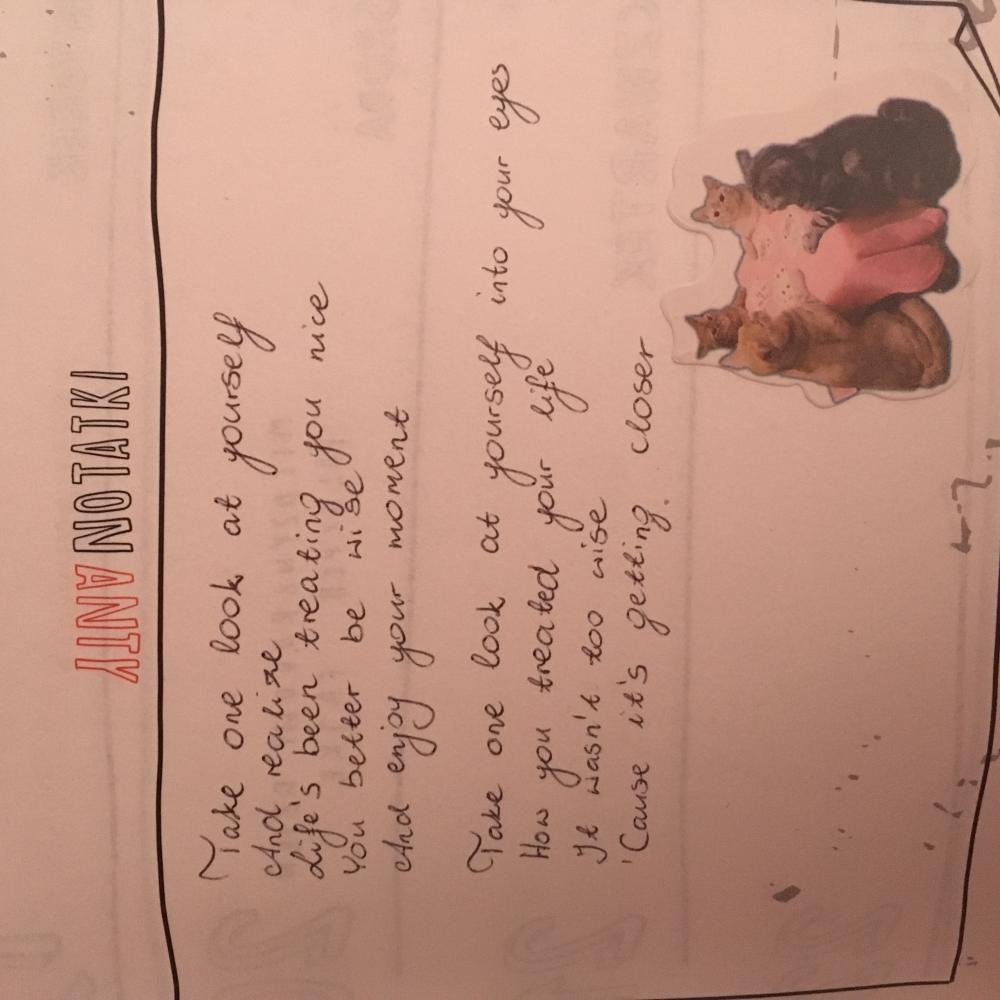 ANTYNOTATKI
Take one look at yourself
And realize
Life's been treating you nice
You better be wise
And enjoy your moment
Take one look at yourself into your eyes
How you treated your life
It wasn't too wise
'Cause it's getting closer